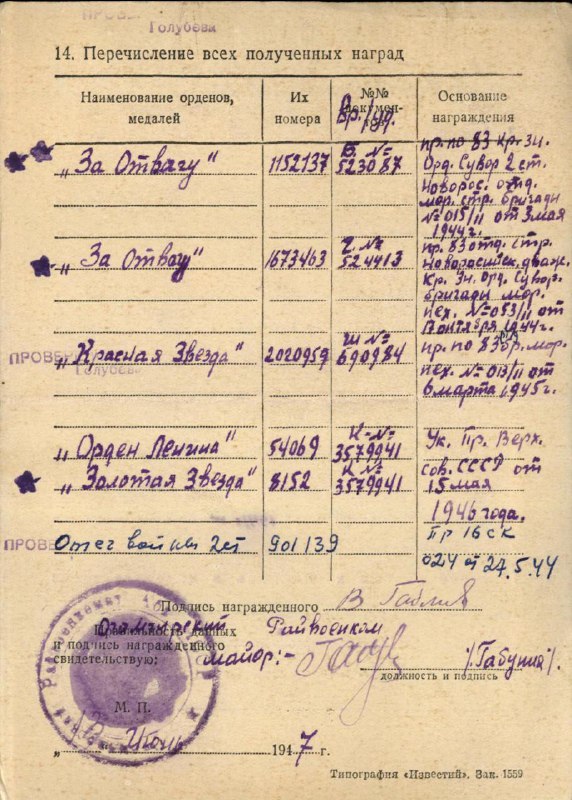 Голубева
14. Перечисление всех полученных наград
Наименование орденов, медалей
Их номера
№№ докумен-
Вр./уд.
Основание награждения
„За Отвагу"
1152137
Б. №
523087
пр. по 83 Кр. Зн.
Орд. Сувор 2 ст.
Новорос. отд.
мор. стр. бригады
№ 015/II от 3 мая
1944 г.
„За Отвагу"
1673463
524413
пр. 83 отд. стр.
Новоросийск. дваж.
Кр. Зн. Орд. Сувор.
бригады мор.
пех. № 053/II от
ноября 1944 г.
ПРОВЕ
Голубева
„Красная Звезда"
2020959
Ш №
690984
пр. по 83 бр. мор.
пех. № 013/II от
6 марта 1945 г.
„Орден Ленина"
54069
К-№
3579941
Ук. Пр. Верх.
„Золотая Звезда"
8152
К №
3579941
сов. СССР от
15 мая
1946 года.
ПРОВЕ
Отеч войны 2 ст
901139
Пр 16 ск
024 от 24.5.44
Подпись награжденного
Правильность данных
и подпись награжденного
свидетельствую:
Очамчирский Райвоенком
Майор:-
/Габуния/.
должность и подпись
М. П.
„ Июнь 1947 г.
Типография «Известий». Зак. 1559